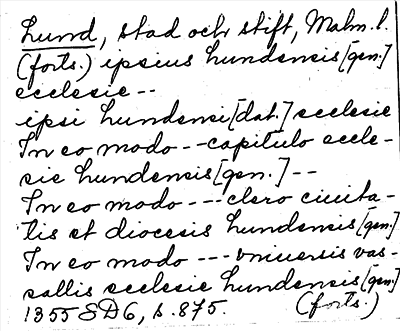 Lund, stad och stift, Malm. l.
(forts.) ipsius lundensis [gen.]
ecclesie --
ipsi lundensi [dat.] ecclesie
In eo modo --- capitulo eccle-
sie lundensis [gen.] --
In eo modo --- clero ciuita-
tis et diocesis lundensis [gen.]
In eo modo --- vniuersis vas-
sallis ecclesie lundensis [gen.]
1355 SD6, s. 875. (forts.)